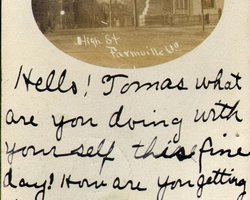 High St
Farmville Va
Hello! Tomas what
are you doing with
your self this fine
day! How are you getting